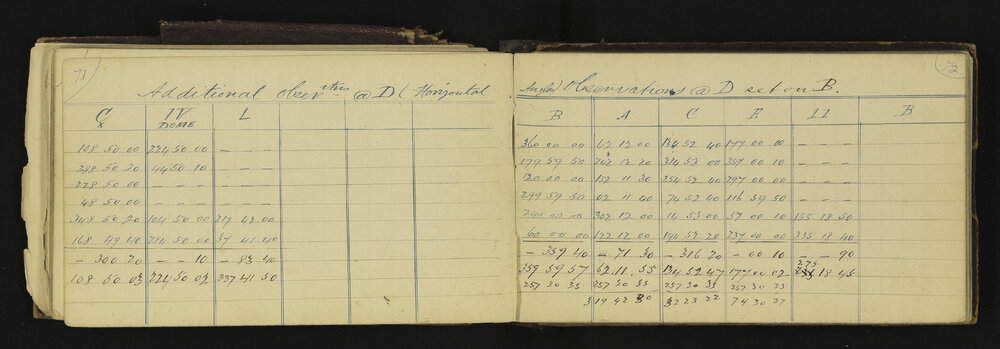 71)
Additional Observtns @ D (Horizontal
C IV L
x DOME
108 50 00 224 50 00 – – – –
288 50 20 44 50 10 – – – –
228 50 00 – – – – – – – –
48 50 00 – – – – – – – –
348 50 20 104 50 00 217 42 00
168 49 40 284 50 00 37 41 40
– 300 20 – – 10 – 83 40
108 50 03 224 50 02 337 41 50
72
Angles) Observations @ D set on B.
B A C E II B
360 00 00 62 12 00 134 52 40 177 00 00 – – – –
179 59 50 242 12 20 314 53 00 357 00 10 – – – –
120 00 00 182 11 30 254 52 40 297 00 00 – – – –
299 59 50 02 11 40 74 52 40 116 59 50 – – – –
240 00 00 302 12 00 14 53 00 57 00 10 155 18 50
60 00 00 122 12 00 194 52 20 237 00 00 335 18 40
– 359 40 – 71 30 – 316 20 – 00 10 – – 90
359 59 57 62 11 55 134 52 47 177 00 02 275 18 45
257 30 35 257 30 35 257 30 35 257 30 35
319 42 30 32 23 22 74 30 37